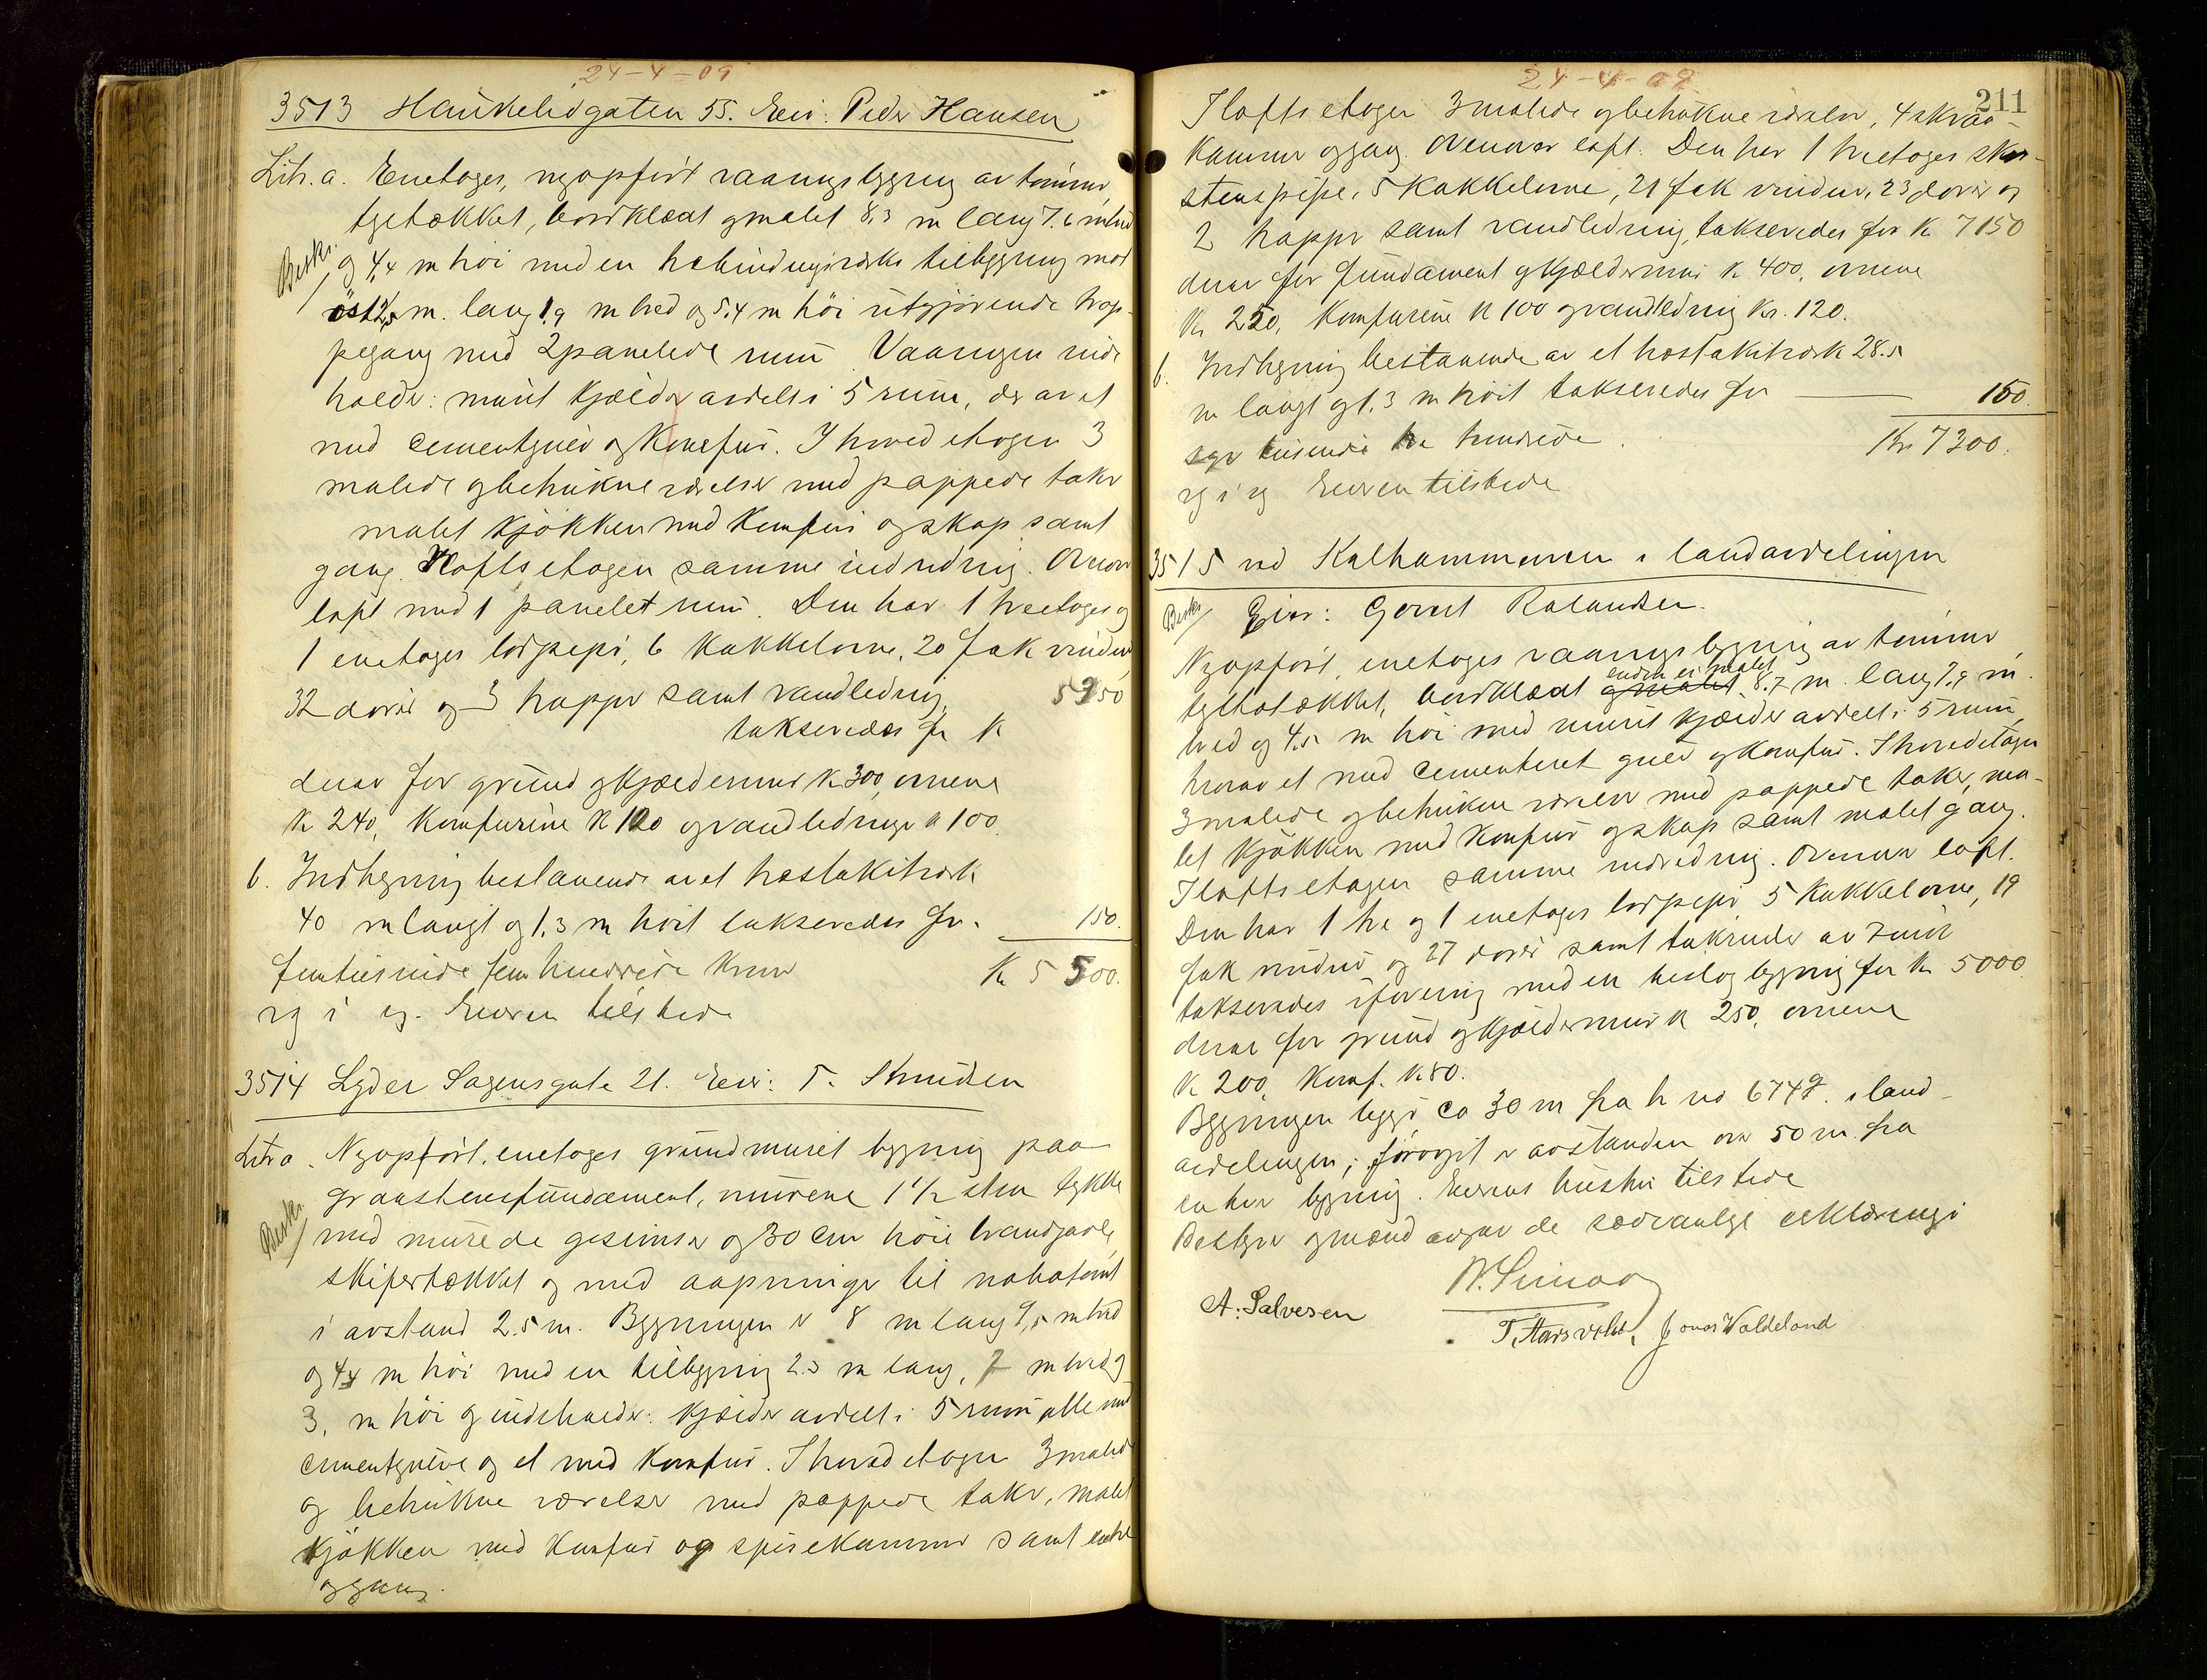 24-4-09
3513 Haukelidgaten 55. Eier: Peder Hansen
Litr. a. Enetages, nyopført vaaningsbygning av tømmer,
tgltækket, bordklædt og malet 8.3 m lang 7.6 m bred
Beskr. og 4,4 m høi med en halvbindingsverks tilbygning mot
øst 2,5 m. lang 1.9 m bred og 5.4 m høi utgjørende trap-
pegang med 2 panelede rum Vaaningen inde
holder: muret kjelder avdelt i 5 rum, der av et
med cementgulv og komfur. I hovedetagen 3
malede og betrukne værelser med pappede taker
malet kjøkken med komfur og skap samt
gang. I loftsetagen samme indredning. Ovenover
loft med 1 panelet rum. Den har 1 tretages og
1 enetages lødpipe, 6 kakkelovne, 20 fak vinduer
32 dører og 3 trapper samt vandledning 5350
takseredes for k
derav for grund og kjeldermur k 300, ovnene
k 240, komfurene k 120 og vandledninge k 100.
b. Indhegning bestaaende av et træstakitværk
40 m langt og 1,3 m høit takseredes for. 150.
femtusinde fem hundrede kroner K 5500.
rg i rg. Eieren tilstede
3514 Lyder Sagensgate 21. Eier: T. Knudsen
Litr a. Nyopført, enetages grundmuret bygning paa
graastensfundament, murene 1 1/2 sten tykke
Beskr. med murede gesimser og 30 cm høie brandgavle,
skifertækket og med aapninger til nabotomt
i avstand 2.5 m. Bygningen er 8 m lang 9,5 m bred
og 4,4 m høi med en tilbygning 2.3 m lang, 7 m bred og
3, m høi og indeholder: kjelder avdelt i 5 rum alle med
cementgulve og et med komfur. I hovedetagen 3 malede
og betrukne værelser med pappede taker, malet
kjøkken med komfur og spisekammer samt entre
og gang.
24-4-09
211
I loftsetagen 3 malede og betrukne værelser, 4 skraa-
kammer og gang. Ovenover loft. Den har 1 tretages skor-
stenspipe, 5 kakkelovne, 21 fak vinduer, 23 dører og
2 trapper samt vandledning, takseredes for k 7150
derav for fundament og kjældermur k 400, ovnene
Kr 250, komfurene k 100 og vandledning kr. 120.
b. Indhegning bestaaende av et træstakitværk 28.5
m langt og 1.3 m høit takseredes for 150.
syv tusinde tre hundrede. Kr 7300.
rg i rg Eieren tilstede
3515 ved Kalhammeren i landavdelingen
Beskr Eier: Gerret Rolandsen.
Nyopført, enetages vaaningsbygning av tømmer
tgltækket, bordklædt og malet enden ei malet 8.7 m lang 7.9 m
bred og 4.5 m høi med muret kjelder avdelt i 5 rum,
hvorav et med cementeret gulv og komfur. I hovedetagen
3 malede og betrukne værelser med pappede taker, ma-
let kjøkken med komfur og skap samt malet gang.
I loftsetagen samme indredning. Ovenover loft.
Den har 1 tre og 1 enetages lødpipe 5 kakkelovne, 19
fak vinduer og 27 dører samt takrender av zink
takseredes i forening med en beslag bygning for kr 5000.
derav for grund og kjeldermur k 250, ovnene
k 200, komf. k 80.
Bygningen ligger ca 30 m fra tr no 674g. i land-
avdelingen; forøvrigt er avstanden over 50 m. fra
enhver bygning. Eierens hustru tilstede
Bestyrer og mænd avgav de sædvanlige erklæringer
A. Salvesen
Jonas Valdeland